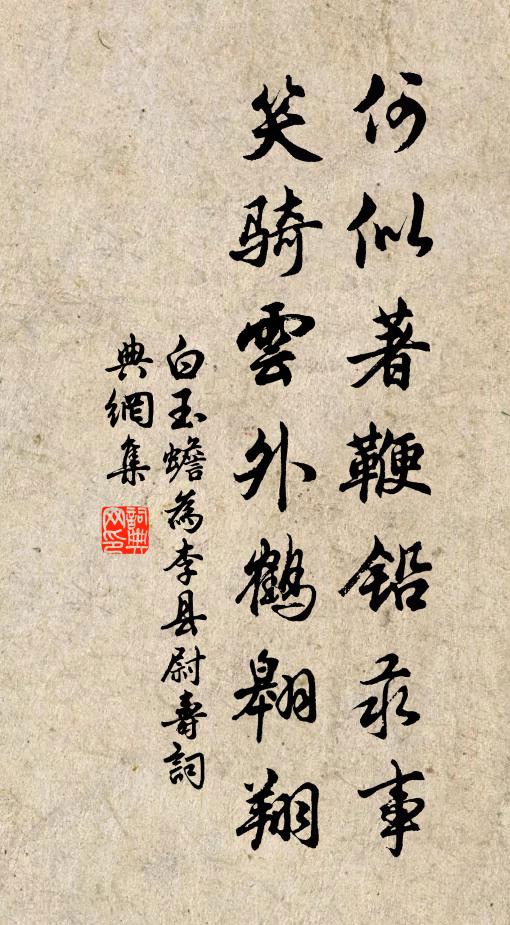 何似著鞭鉛汞事
笑騎雲外鶴翱翔
白玉蟾為李县尉壽詞
典網集
詞典網印